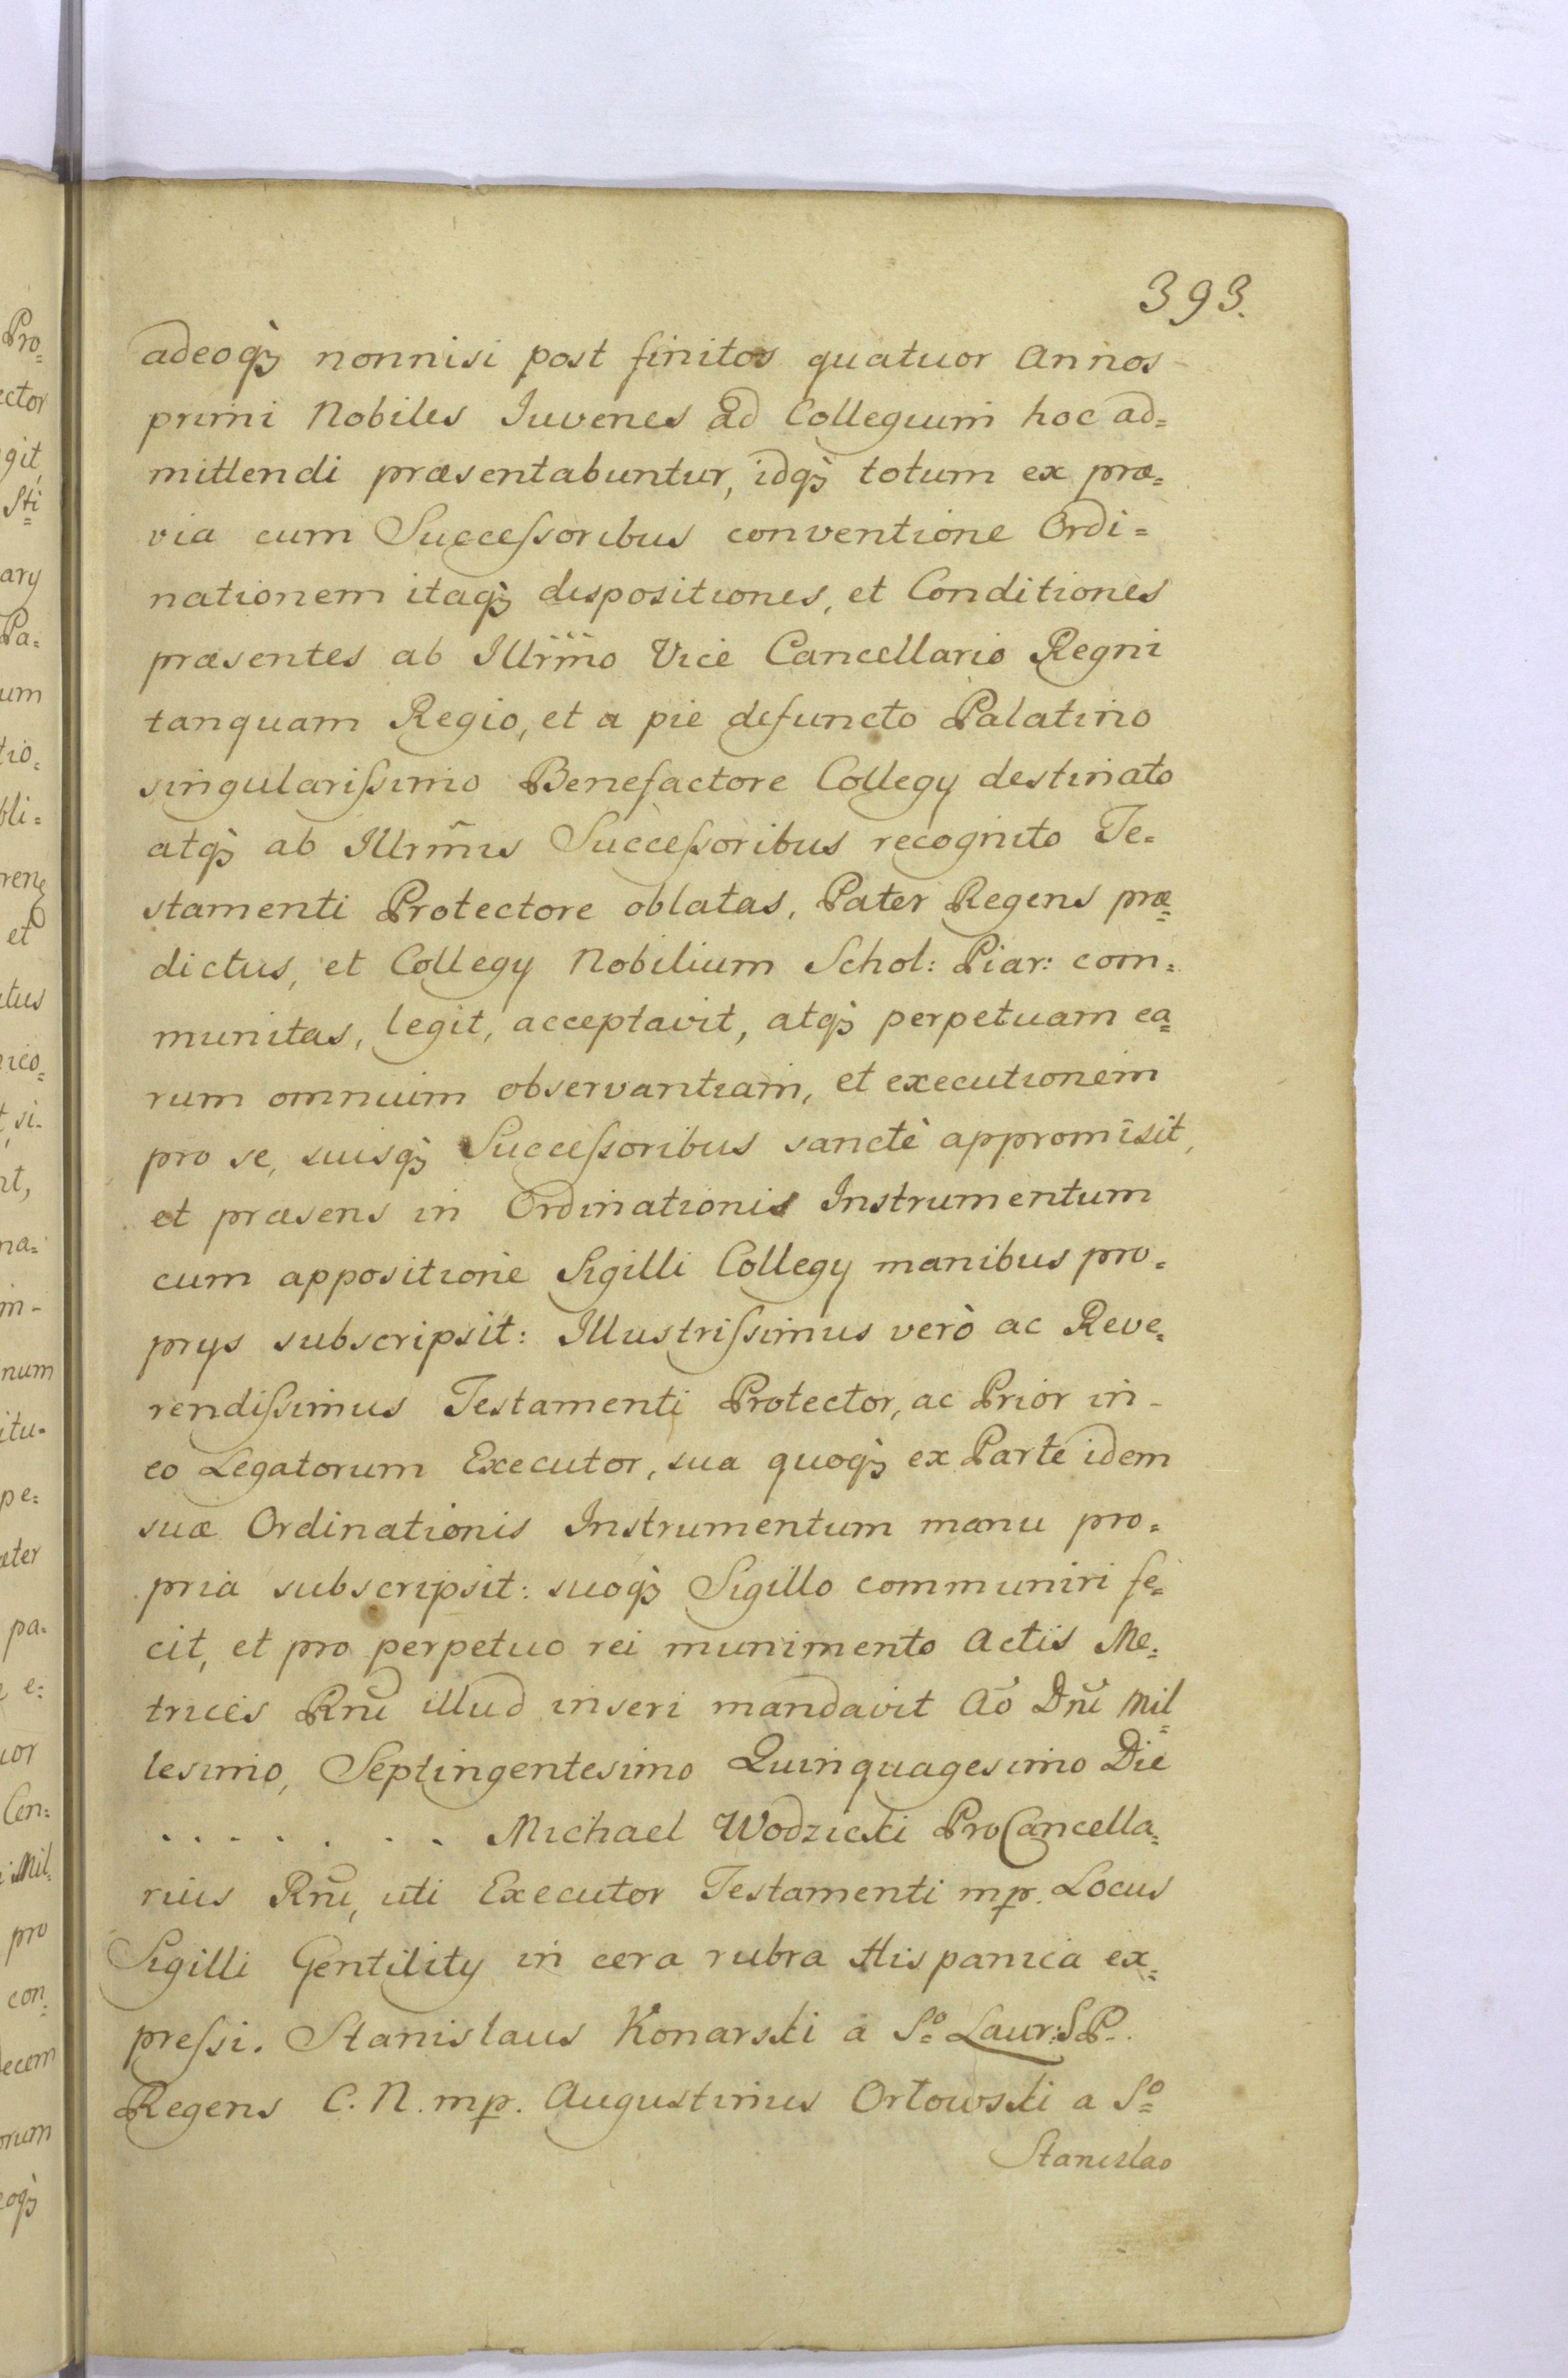 393.
adeoq̃ nonnisi post finitos quatuor Annos
primi Nobiles Iuvenes ad Collegium hoc ad=
mittendi præsentabuntur, idq̃ totum ex præ=
via cum Succeſsoribus conventione Ordi=
nationem itaq̃ dispositiones, et Conditiones
præsentes ab Illr̃mo Vice Cancellario Regni
tanquam Regio, et a pie defuncto Palatino
singulariſsimo Benefactore Collegy destinato
atq̃ ab Illrm̃is Succeſsoribus recognito Te=
stamenti Protectore oblatas, Pater Regens præ=
dictus, et Collegy Nobilium Schol: Piar: com=
munitas, legit, acceptavit, atq̃ perpetuam ea=
rum omnium observantiam, et executionem
pro se, suisq̃ Succeſsoribus sanctè appromisit,
et præsens in Ordinationis Instrumentum
cum appositione Sigilli Collegy manibus pro=
prys subscripsit: Illustriſsimus verò ac Reve=
rendiſsimus Testamenti Protector, ac Prior in-
eo Legatorum Executor, sua quoq̃ ex Parte idem
suæ Ordinationis Instrumentum manu pro=
pria subscripsit: suoq̃ Sigillo communiri fe=
cit, et pro perpetuo rei munimento Actis Me=
trices Rñi illud inseri mandavit Aõ Dñi Mil=
lesimo, Septingentesimo Quinquagesimo Die
. . . . . . . . Michael Wodzicki ProCancella=
rius Rñi, uti Executor Testamenti mp. Locus
Sigilli Gentility in cera rubra Hispanica ex=
preſsi. Stanislaus Konarski à Sº Laur: S.P.
Regens C. N. mp. Augustinus Orłowski a Sº
Stanislao